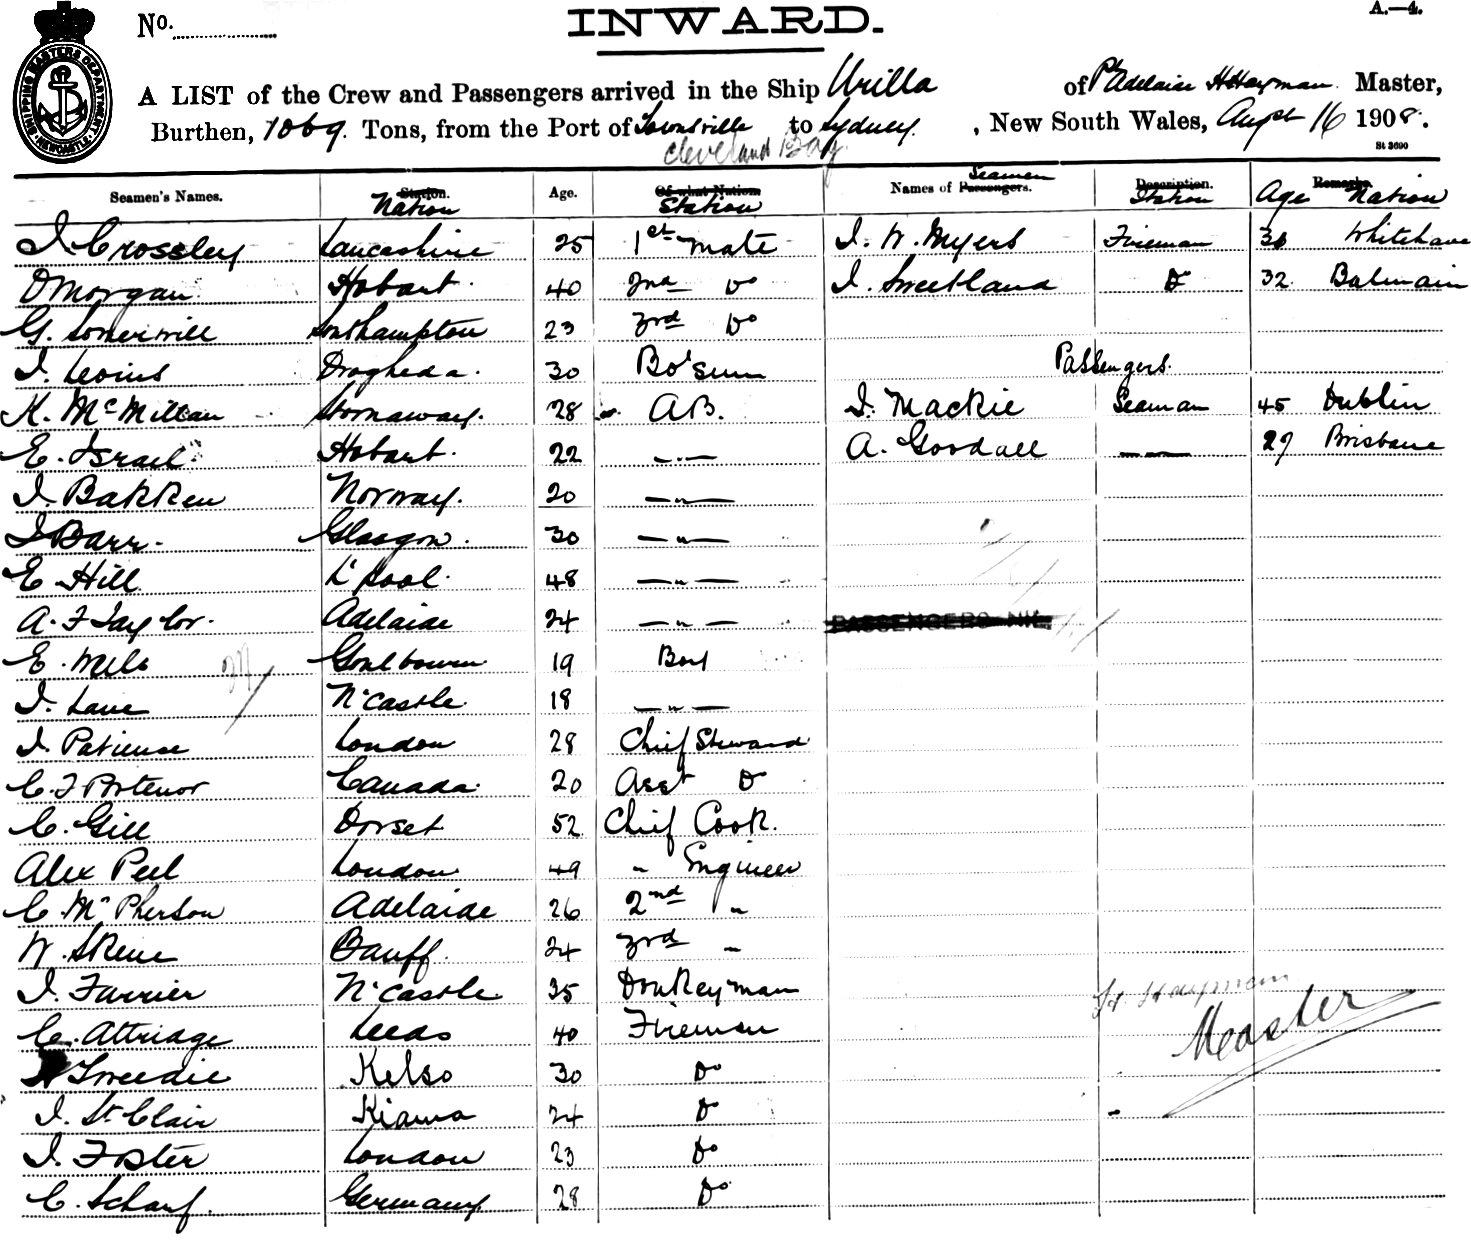 No.
INWARD.
A.—4.
SHIPPING MASTERS DEPARTMENT NEWCASTLE
A LIST of the Crew and Passengers arrived in the Ship Urilla of Pt Adelaide H Hayman Master,
Burthen, 1069 Tons, from the Port of Townsville to Sydney, New South Wales, Augst 16 1908.
Cleveland Bay
St 3690
Seamen's Names. Station. Nation Age. Of what Nation Station Names of Passengers. Seamen Description. Station Remarks. Age Nation
J. Crossley Lancashire 25 1st mate J. W. Myers Fireman 36 Whitehave
D Morgan Hobart 40 2nd Do J. Sweetland Do 32 Balmain
G. Somerville Southampton 23 3rd Do
J. Levins Drogheda. 30 Bo'sun Passengers.
K. McMillan Stornaway. 28 A.B. J. Mackie Seaman 45 Dublin
E. Israel Hobart. 22 — " — A. Goodall — " — 27 Brisbane
J. Bakken Norway. 20 — " —
J Barr. Glasgow. 30 — " —
E Hill L'pool. 48 — " —
A. F Taylor. Adelaide 24 — " — PASSENGERS NIL
E. Mills Goulbourn 19 Boy
J. Lane N'castle 18 — " —
J. Patience London 28 Chief Steward
C. F Portenor Canada. 20 Asst Do
C. Gill Dorset 52 Chief Cook.
Alex Peel London 49 " Engineer
C. McPherson Adelaide 26 2nd "
W. Skene Banff. 24 3rd "
J. Farrier N'castle 35 Donkeyman
C. Attridge Leeds 40 Fireman
H. Hayman
Master
Tweedie Kelso 30 Do
J. St Clair Kiama 24 Do
J. Foster London 23 Do
C. Scharf. Germany 28 Do